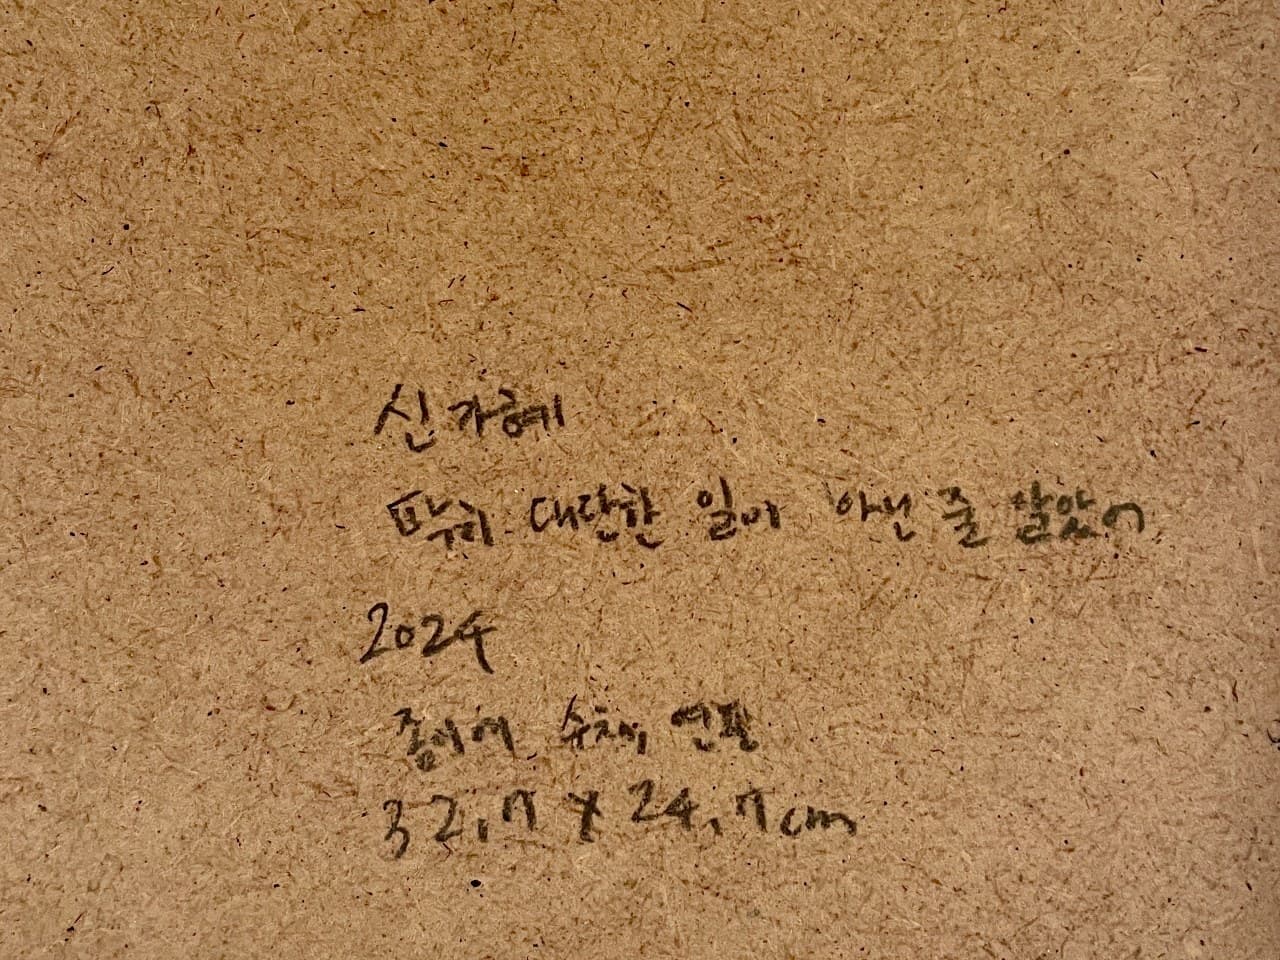 신가혜
딱히 대단한 일이 아닌 줄 알았어
2024
종이에 수채, 연필
32.7 x 24.7cm